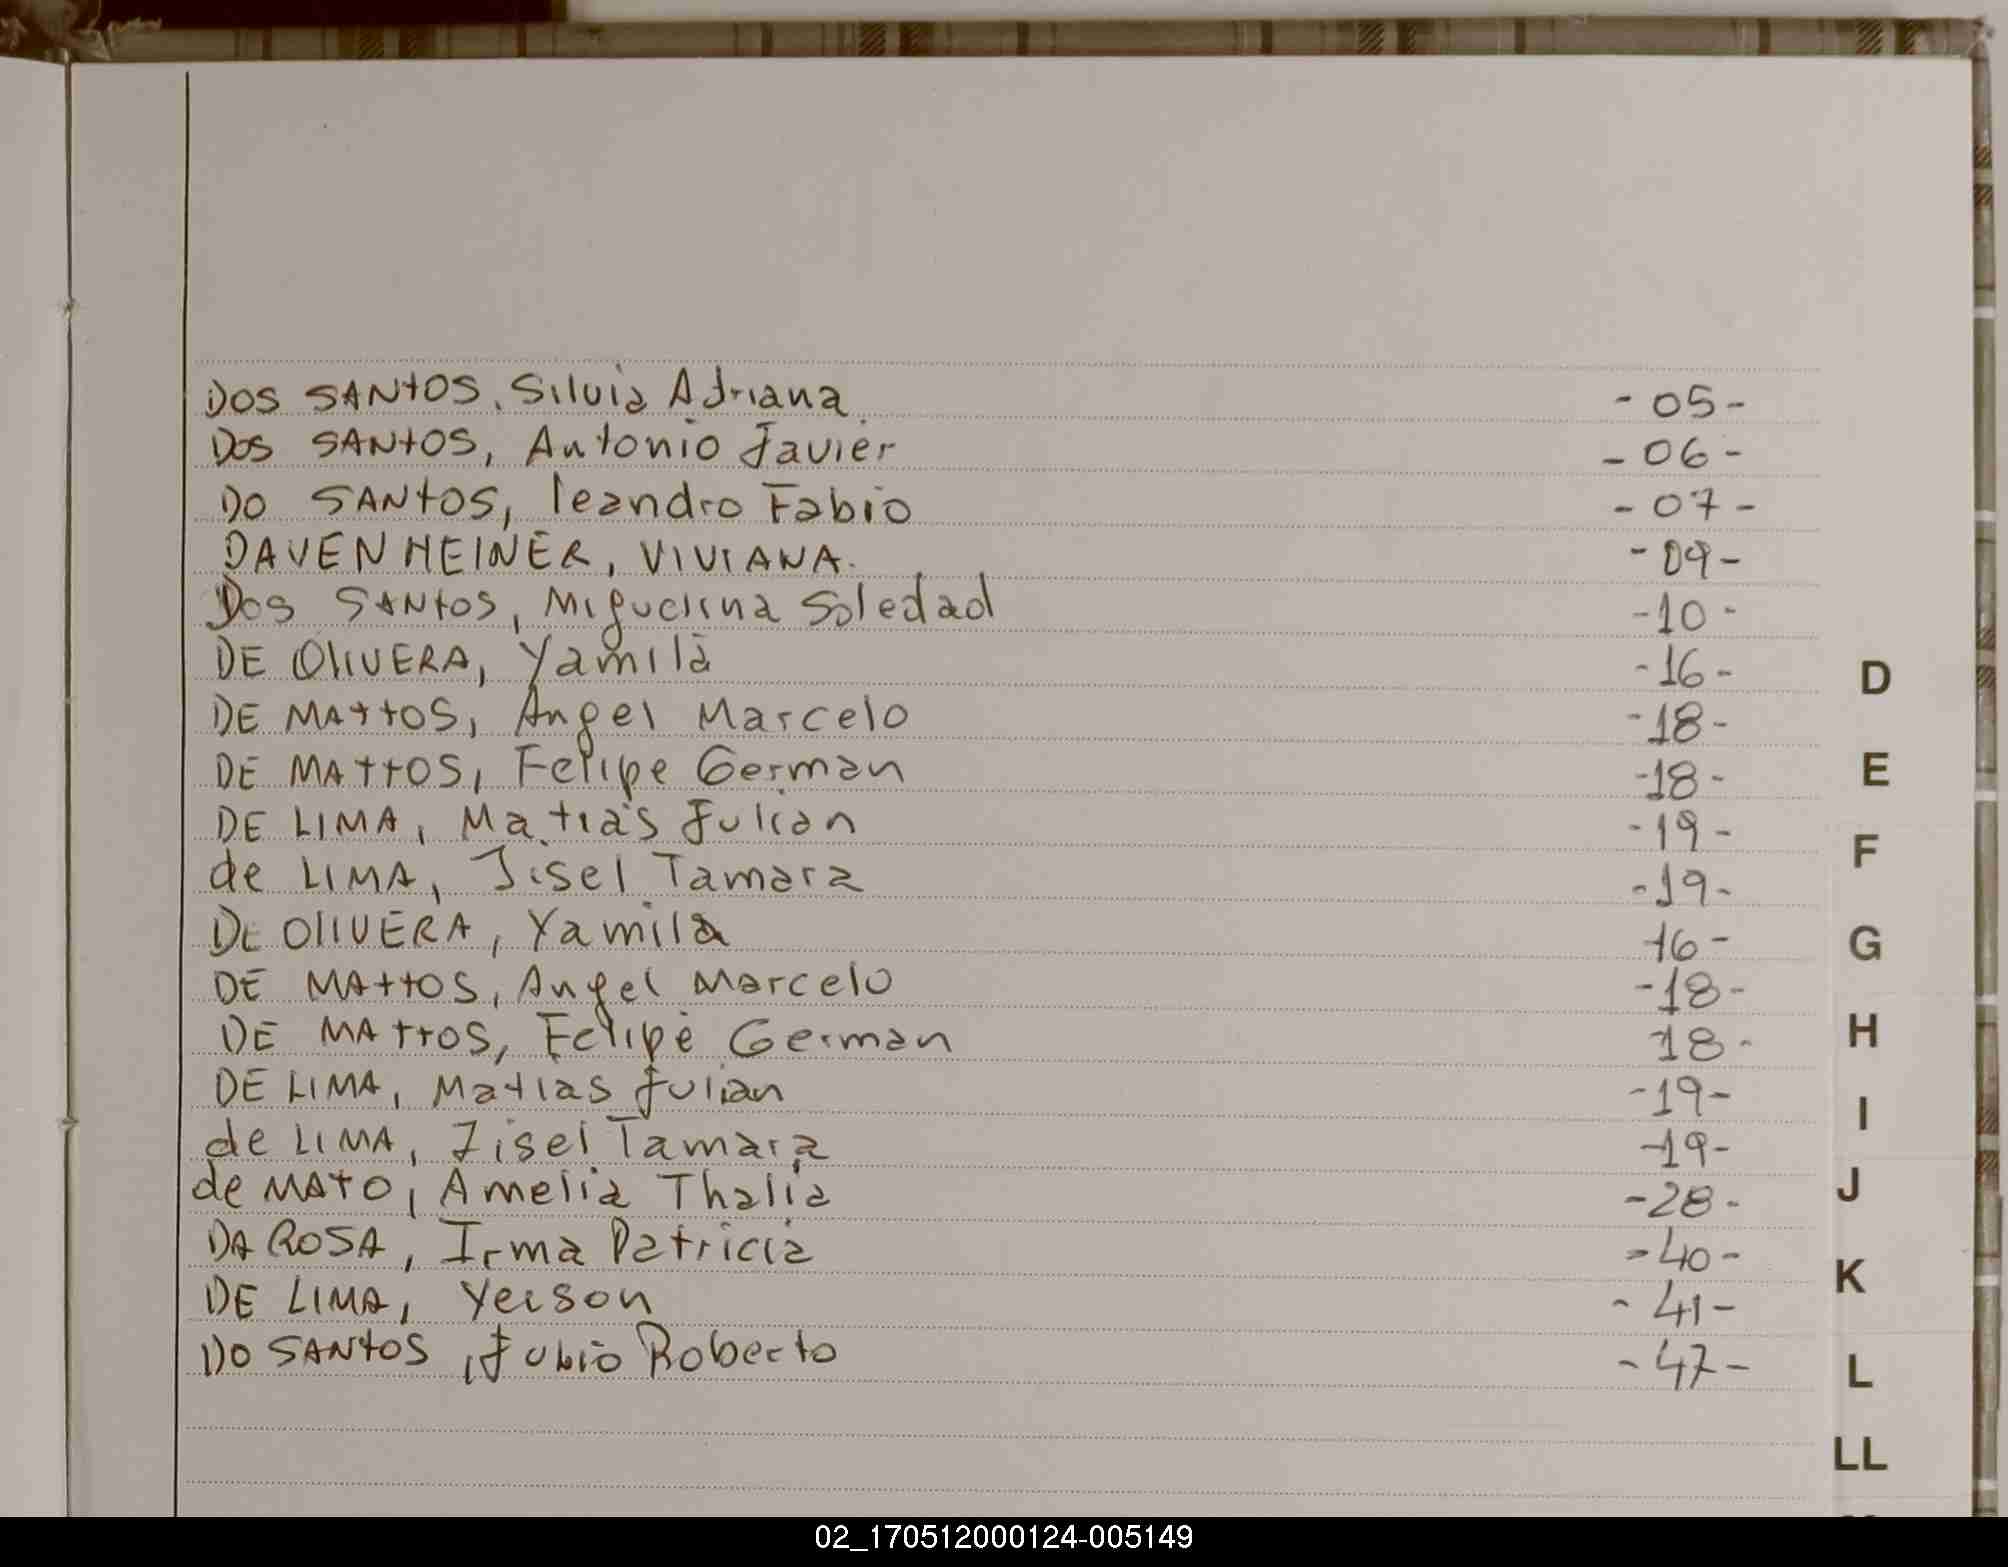 DOS SANTOS, Silvia Adriana - 05 -
DOS SANTOS, Antonio Javier - 06 -
DO SANTOS, leandro Fabio - 07 -
DAVENHEINER, VIVIANA. - 09 -
DOS SANTOS, Miguelina Soledad - 10 -
DE OlIVERA, Yamila - 16 -
DE MATTOS, Angel Marcelo - 18 -
DE MATTOS, Felipe German - 18 -
DE LIMA, Matias Julian - 19 -
de LIMA, Jisel Tamara - 19 -
DE OlIVERA, Yamila 16 -
DE MATTOS, Angel Marcelo - 18 -
DE MATTOS, Felipe German 18 -
DE LIMA, Matias Julian - 19 -
de LIMA, Jisel Tamara - 19 -
de MATO, Amelia Thalia - 28 -
DA ROSA, Irma Patricia - 40 -
DE LIMA, Yeison - 41 -
DO SANTOS, Julio Roberto - 47 -
D
E
F
G
H
I
J
K
L
LL
02_170512000124-005149